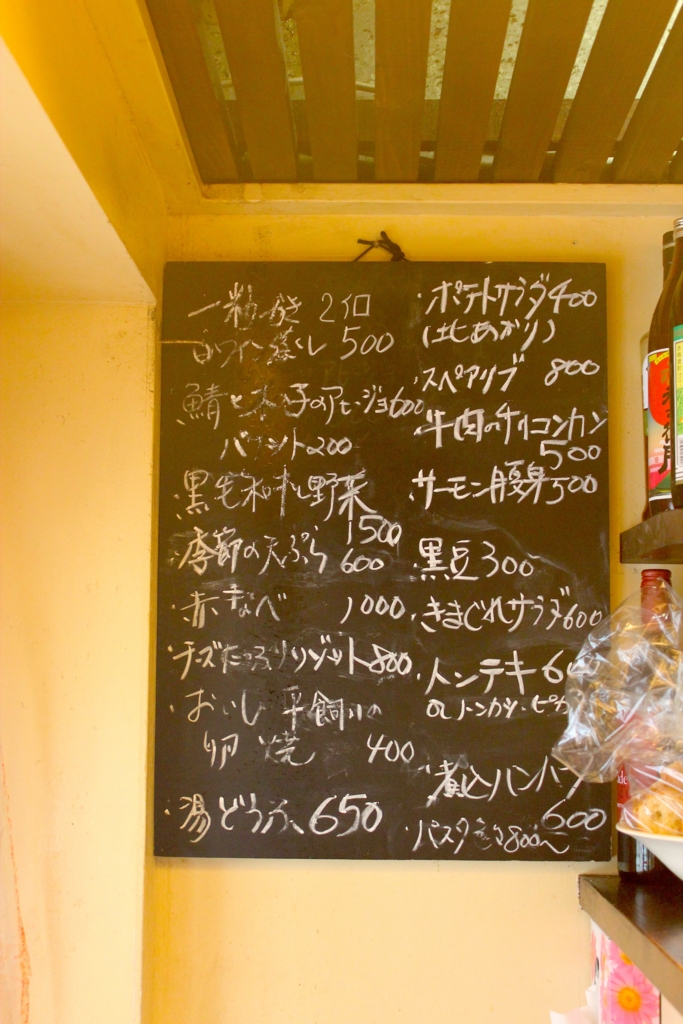 500
鯖と のアヒージョ600
200
黒毛和牛と野菜
1500
・季節の天ぷら 600
・赤 なべ 1000
・チーズたっぷりリゾット800
・おいしい平飼いの
卵 焼 400
・湯どうふ 650
・ポテトサラダ400
(北あかり)
・スペアリブ 800
・牛肉のチリコンカン
500
サーモン 500
・黒豆300
・きまぐれサラダ600
・トンテキ
orトンカツ・ピカ
・煮込ハンバ
600
・パスタ 800〜